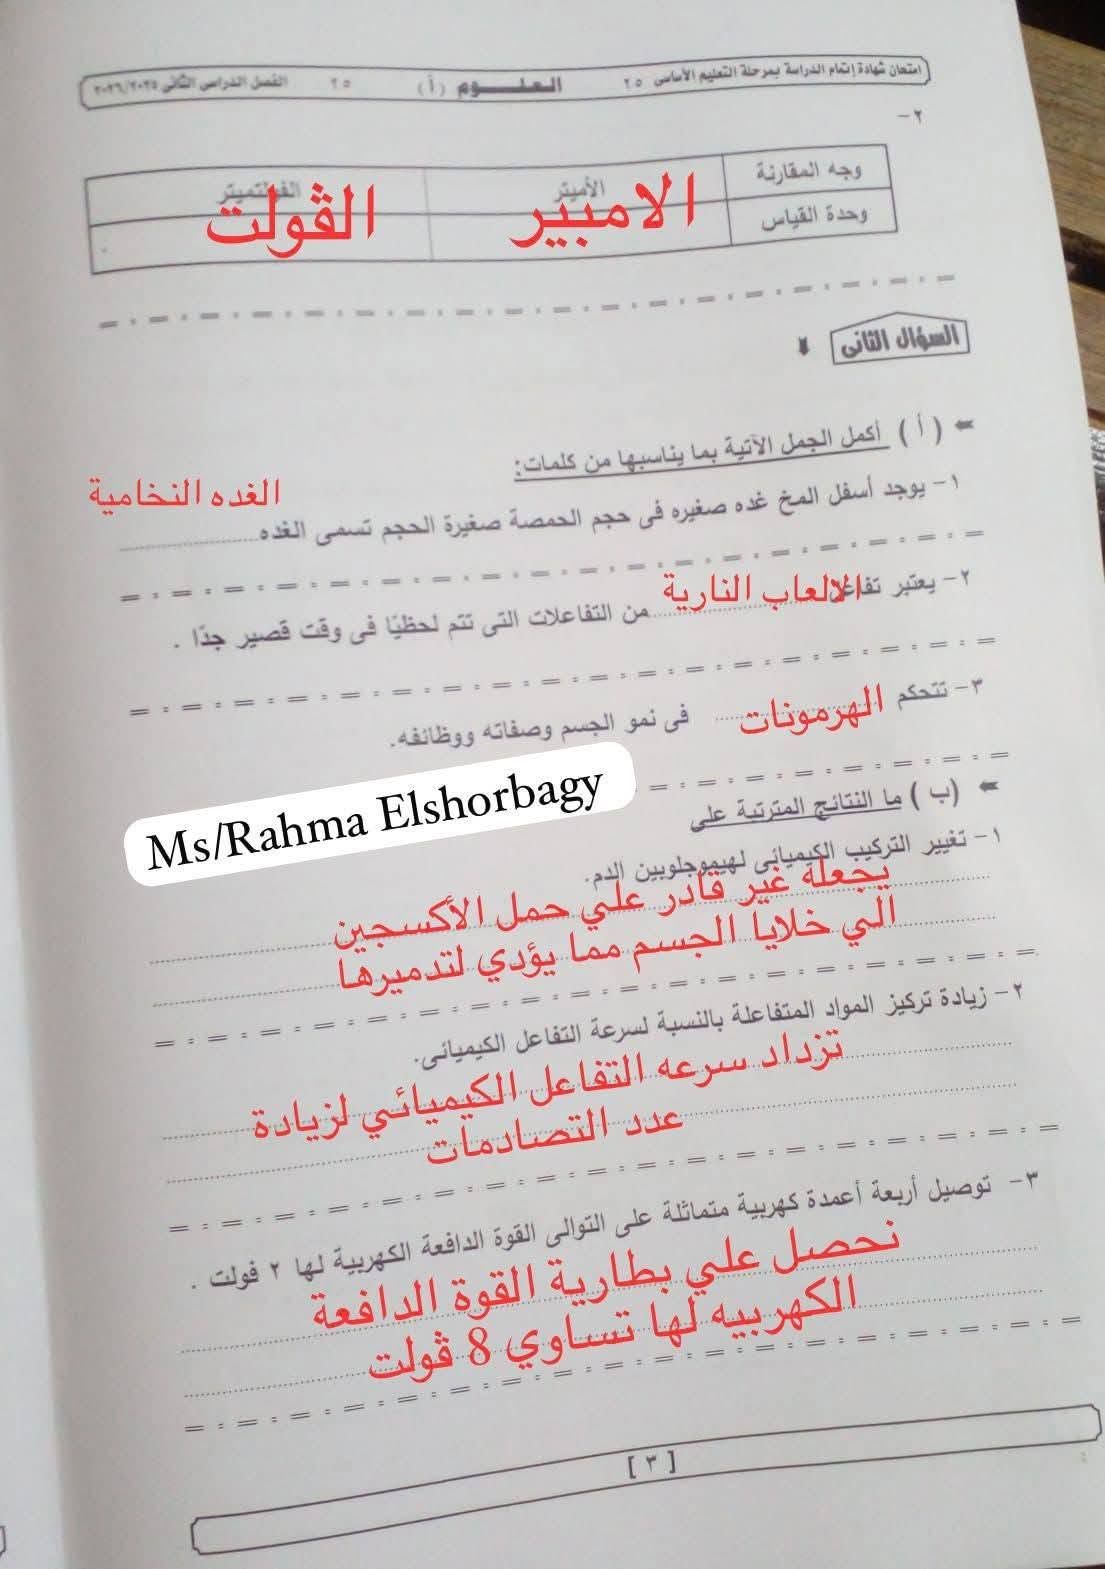 امتحان شهادة إتمام الدراسة بمرحلة التعليم الأساسى ٢٥ العلوم (أ) ٢٥ الفصل الدراسى الثانى ٢٠٢٦/٢٠٢٥
٢-
وجه المقارنة الأميتر الفولتميتر
وحدة القياس الامبير الڤولت
السؤال الثانى
(أ) أكمل الجمل الآتية بما يناسبها من كلمات:
١- يوجد أسفل المخ غده صغيره فى حجم الحمصة صغيرة الحجم تسمى الغده
الغده النخامية
٢- يعتبر تفاعل الالعاب النارية من التفاعلات التى تتم لحظيًا فى وقت قصير جدًا .
٣- تتحكم الهرمونات فى نمو الجسم وصفاته ووظائفه.
Ms/Rahma Elshorbagy
(ب) ما النتائج المترتبة على
١- تغيير التركيب الكيميائى لهيموجلوبين الدم.
يجعله غير قادر علي حمل الأكسجين
الي خلايا الجسم مما يؤدي لتدميرها
٢- زيادة تركيز المواد المتفاعلة بالنسبة لسرعة التفاعل الكيميائى.
تزداد سرعه التفاعل الكيميائي لزيادة
عدد التصادمات
٣- توصيل أربعة أعمدة كهربية متماثلة على التوالى القوة الدافعة الكهربية لها ٢ فولت .
نحصل علي بطارية القوة الدافعة
الكهربيه لها تساوي 8 ڤولت
[ ٣ ]